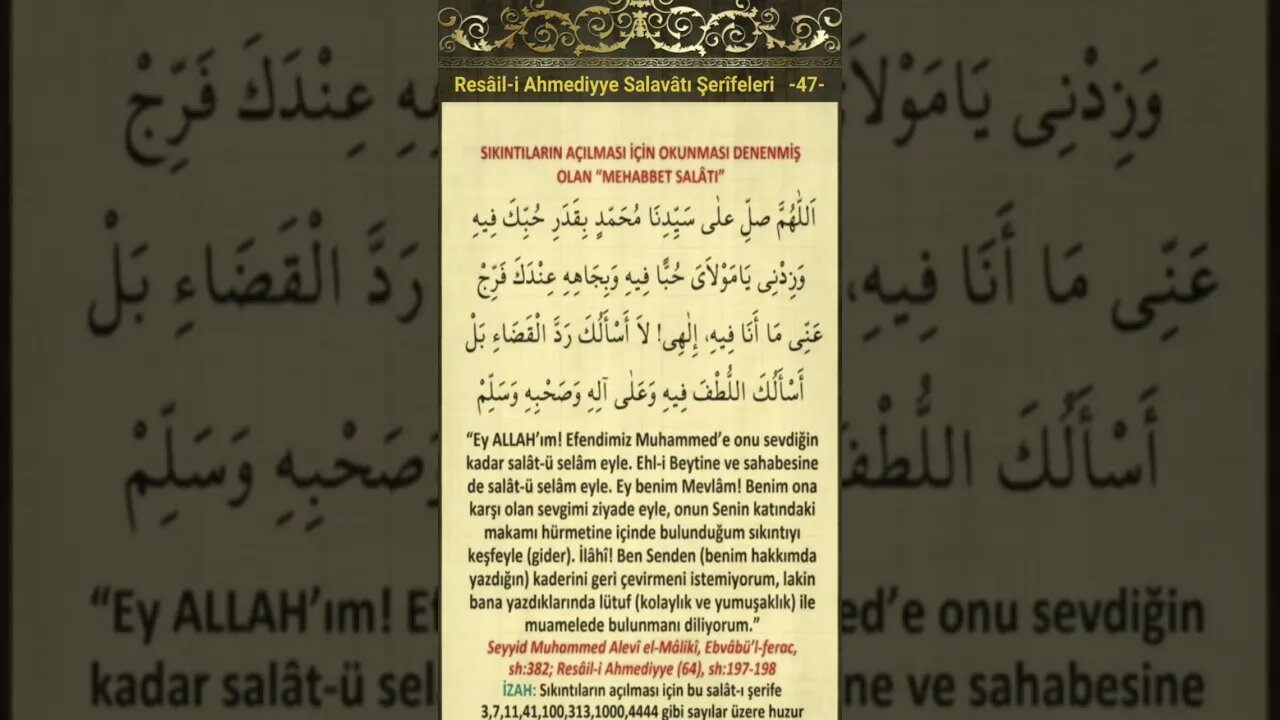 Resâil-i Ahmediyye Salavâtı Şerîfeleri -47-
SIKINTILARIN AÇILMASI İÇİN OKUNMASI DENENMİŞ
OLAN “MEHABBET SALÂTI”
اَللّٰهُمَّ صلِّ علٰى سَيِّدِنَا مُحَمَّدٍ بِقَدَرِ حُبِّكَ فِيهِ
وَزِدْنِى يَامَوْلاَىَ حُبًّا فِيهِ وَبِجَاهِهِ عِنْدَكَ فَرِّجْ
عَنِّى مَا أَنَا فِيهِ، إِلٰهِى! لاَ أَسْأَلُكَ رَدَّ الْقَضَاءِ بَلْ
أَسْأَلُكَ اللُّطْفَ فِيهِ وَعَلٰى آلِهِ وَصَحْبِهِ وَسَلِّمْ
“Ey ALLAH’ım! Efendimiz Muhammed’e onu sevdiğin
kadar salât-ü selâm eyle. Ehl-i Beytine ve sahabesine
de salât-ü selâm eyle. Ey benim Mevlâm! Benim ona
karşı olan sevgimi ziyade eyle, onun Senin katındaki
makamı hürmetine içinde bulunduğum sıkıntıyı
keşfeyle (gider). İlâhî! Ben Senden (benim hakkımda
yazdığın) kaderini geri çevirmeni istemiyorum, lakin
bana yazdıklarında lütuf (kolaylık ve yumuşaklık) ile
muamelede bulunmanı diliyorum.”
Seyyid Muhammed Alevî el-Mâlikî, Ebvâbü’l-ferac,
sh:382; Resâil-i Ahmediyye (64), sh:197-198
İZAH: Sıkıntıların açılması için bu salât-ı şerife
3,7,11,41,100,313,1000,4444 gibi sayılar üzere huzur